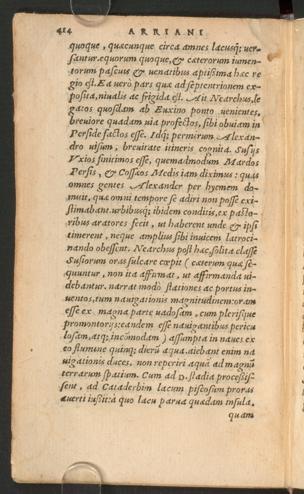 414 ARRIANI
quoque, quæcunque circa amnes lacusq; uer
santur: equorum quoque, & cæterorum iumen
torum pascuis & uenatibus aptißima hæc re
gio est. Ea uerò pars quæ ad septentrionem ex
posita, niualis ac frigida est. Ait Nearchus, le
gatos quosdam ab Euxino ponto uenientes,
breuiore quadam uia profectos, sibi obuiam in
Perside factos esse. Idq; permirum Alexan
dro uisum, breuitate itineris cognita. Susijs
Vxios finitimos esse, quemadmodum Mardos
Persis, & Cossæos Medis iam diximus: quas
omnes gentes Alexander per hyemem do
muit, quæ omni tempore se adiri non posse exi
stimabant. urbibusq; ibidem conditis, ex pasto
ribus aratores fecit, ut haberent unde & ipsi
timerent, neque amplius sibi inuicem latroci
nando obessent. Nearchus post hæc solita classe
Susiorum oras sulcare cœpit (cæterum quæ se
quuntur, non ita affirmat, ut affirmanda ui
debantur. narrat modò stationes ac portus in
uentos, tum nauigationis magnitudinem: oram
esse ex magna parte uadosam, cum plerisque
promontorijs: eandem esse nauigantibus pericu
losam, atq; incõmodam) assumpta in naues ex
eo flumine quinq; dierũ aqua. aiebant enim na
uigationis duces, non reperiri aquã ad magnũ
terrarum spatium. Cum ad D. stadia processis=
sent, ad Cataderbim lacum piscosum proras
auerti iußit: à quo lacu parua quædam insula,
quam